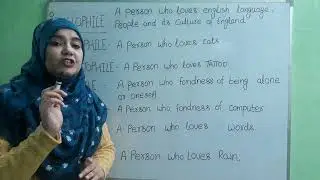 PHILE - A person who loves english language,
People and its culture of England
PHILE - A Person who loves cats
TOPHILE - A Person who loves TATTOO
A person who fondness of being alone
or oneself
A Person who fondness of computer
A Person who loves words.
A Person who Loves Rain.